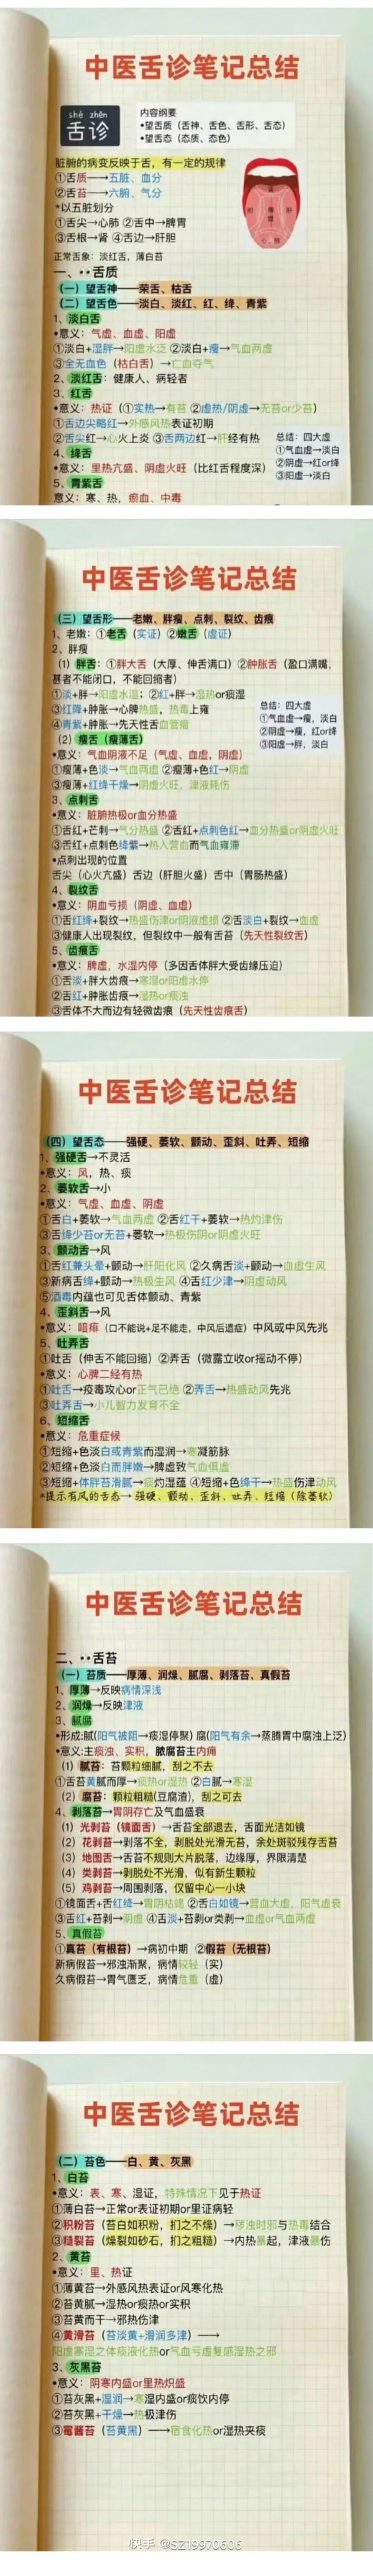 中医舌诊笔记总结
shé zhěn
舌诊
内容纲要
•望舌质（舌神、舌色、舌形、舌态）
•望舌态（态质、态色）
脏腑的病变反映于舌，有一定的规律
①舌质——→五脏、血分
②舌苔——→六腑、气分
*以五脏划分
①舌尖→心肺 ②舌中→脾胃
③舌根→肾 ④舌边→肝胆
正常舌象：淡红舌，薄白苔
一、••舌质
（一）望舌神——荣舌、枯舌
（二）望舌色——淡白、淡红、红、绛、青紫
1、淡白舌
•意义：气虚、血虚、阳虚
①淡白+湿胖→阳虚水泛 ②淡白+瘦→气血两虚
③全无血色（枯白舌）→亡血夺气
2、淡红舌：健康人、病轻者
3、红舌
•意义：热证（①实热→有苔 ②虚热/阴虚→无苔or少苔）
①舌边尖略红→外感风热表证初期
②舌尖红→心火上炎 ③舌两边红→肝经有热
4、绛舌
•意义：里热亢盛、阴虚火旺（比红舌程度深）
5、青紫舌
意义：寒、热，瘀血、中毒
总结：四大虚
①气血虚→淡白
②阴虚→红or绛
③阳虚→淡白
中医舌诊笔记总结
（三）望舌形——老嫩、胖瘦、点刺、裂纹、齿痕
1、老嫩：①老舌（实证）②嫩舌（虚证）
2、胖瘦
（1）胖舌：①胖大舌（大厚、伸舌满口）②肿胀舌（盈口满嘴，
甚者不能闭口，不能回缩者）
①淡+胖→阳虚水湿；②红+胖→湿热or痰湿
③红绛+肿胀→心脾热盛，热毒上雍
④青紫+肿胀→先天性舌血管瘤
（2）瘦舌（瘦薄舌）
•意义：气血阴液不足（气虚、血虚，阴虚）
①瘦薄+色淡→气血两虚 ②瘦薄+色红→阴虚
③瘦薄+红绛干燥→阴虚火旺，津液耗伤
3、点刺舌
•意义：脏腑热极or血分热盛
①舌红+芒刺→气分热盛 ②舌红+点刺色红→血分热盛or阴虚火旺
③舌红+点刺色绛紫→热入营血而气血雍滞
•点刺出现的位置
舌尖（心火亢盛）舌边（肝胆火盛）舌中（胃肠热盛）
4、裂纹舌
•意义：阴血亏损（阴虚、血虚）
①舌红绛+裂纹→热盛伤津or阴液虚损 ②舌淡白+裂纹→血虚
③健康人出现裂纹，但裂纹中一般有舌苔（先天性裂纹舌）
5、齿痕舌
•意义：脾虚，水湿内停（多因舌体胖大受齿缘压迫）
①舌淡+胖大齿痕→寒湿or阳虚水停
②舌红+肿胀齿痕→湿热or痰浊
③舌体不大而边有轻微齿痕（先天性齿痕舌）
总结：四大虚
①气血虚→瘦，淡白
②阴虚→瘦，红or绛
③阳虚→胖，淡白
中医舌诊笔记总结
（四）望舌态——强硬、萎软、颤动、歪斜、吐弄、短缩
1、强硬舌→不灵活
•意义：风，热、痰
2、萎软舌→小
•意义：气虚、血虚、阴虚
①舌白+萎软→气血两虚 ②舌红干+萎软→热灼津伤
③舌绛少苔or无苔+萎软→热极伤阴or阴虚火旺
3、颤动舌→风
①舌红兼头晕+颤动→肝阳化风 ②久病舌淡+颤动→血虚生风
③新病舌绛+颤动→热极生风 ④舌红少津→阴虚动风
⑤酒毒内蕴也可见舌体颤动、青紫
4、歪斜舌→风
•意义：喑痱（口不能说+足不能走，中风后遗症）中风或中风先兆
5、吐弄舌
①吐舌（伸舌不能回缩）②弄舌（微露立收or摇动不停）
•意义：心脾二经有热
①吐舌→疫毒攻心or正气已绝 ②弄舌→热盛动风先兆
③吐弄舌→小儿智力发育不全
6、短缩舌
•意义：危重症候
①短缩+色淡白或青紫而湿润→寒凝筋脉
②短缩+色淡白而胖嫩→脾虚致气血俱虚
③短缩+体胖苔滑腻→痰灼湿蕴 ④短缩+色绛干→热盛伤津动风
*提示有风的舌态→强硬、颤动、歪斜、吐弄、短缩（除萎软）
中医舌诊笔记总结
二、••舌苔
（一）苔质——厚薄、润燥、腻腐、剥落苔、真假苔
1、厚薄→反映病情深浅
2、润燥→反映津液
3、腻腐
•形成:腻(阳气被阻→痰湿停聚) 腐(阳气有余→蒸腾胃中腐浊上泛)
•意义:主痰浊、实积，脓腐苔主内痈
（1）腻苔：苔颗粒细腻，刮之不去
①舌苔黄腻而厚→痰热or湿热 ②白腻→寒湿
（2）腐苔：颗粒粗糙(豆腐渣)，刮之可去
4、剥落苔→胃阴存亡及气血盛衰
（1）光剥苔（镜面舌）→舌苔全部退去，舌面光洁如镜
（2）花剥苔→剥落不全，剥脱处光滑无苔，余处斑驳残存舌苔
（3）地图舌→舌苔不规则大片脱落，边缘厚，界限清楚
（4）类剥苔→剥脱处不光滑，似有新生颗粒
（5）鸡剥苔→周围剥落，仅留中心一小块
①镜面舌+舌红绛→胃阴枯竭 ②舌白如镜→营血大虚，阳气虚衰
③舌红+苔剥→阴虚 ④舌淡+苔剥or类剥→血虚or气血两虚
5、真假苔
①真苔（有根苔）→病初中期 ②假苔（无根苔）
新病假苔→邪浊渐聚，病情较轻（实）
久病假苔→胃气匮乏，病情危重（虚）
中医舌诊笔记总结
（二）苔色——白、黄、灰黑
1、白苔
•意义：表、寒、湿证，特殊情况下见于热证
①薄白苔→正常or表证初期or里证病轻
②积粉苔（苔白如积粉，扪之不燥）→秽浊时邪与热毒结合
③糙裂苔（燥裂如砂石，扪之粗糙）→内热暴起，津液暴伤
2、黄苔
•意义：里、热证
①薄黄苔→外感风热表证or风寒化热
②苔黄腻→湿热or痰热or实积
③苔黄而干→邪热伤津
④黄滑苔（苔淡黄+滑润多津）——→
阳虚寒湿之体痰液化热or气血亏虚复感湿热之邪
3、灰黑苔
•意义：阴寒内盛or里热炽盛
①苔灰黑+湿润→寒湿内盛or痰饮内停
②苔灰黑+干燥→热极津伤
③霉酱苔（苔黄黑）——→宿食化热or湿热夹痰
快手 @SZ19970606